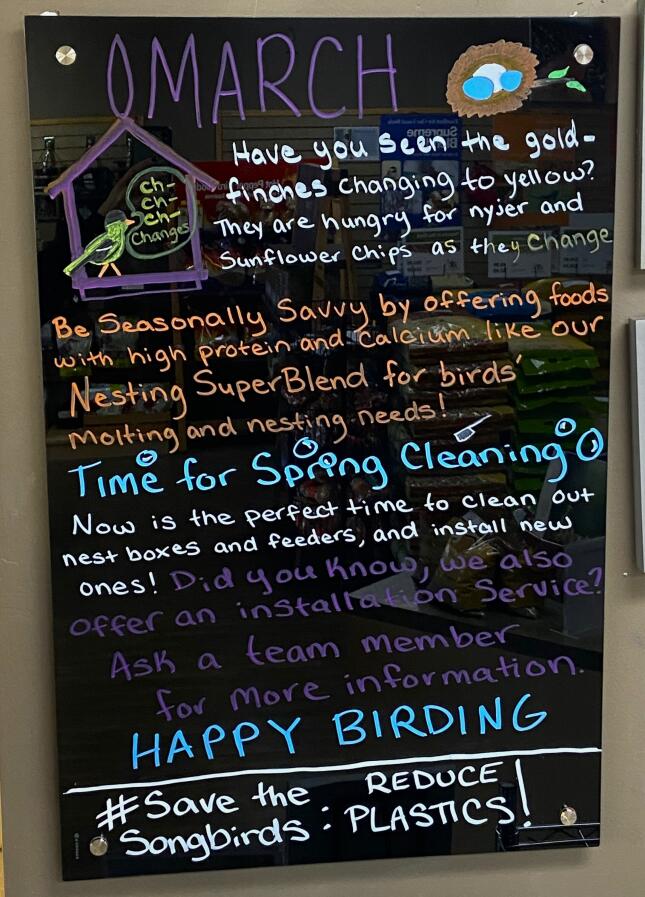 MARCH
Have you seen the gold-
finches changing to yellow?
They are hungry for nyjer and
Sunflower chips as they change
ch-
ch-
ch-
Changes
Be Seasonally Savvy by offering foods
with high protein and calcium like our
Nesting SuperBlend for birds'
molting and nesting needs!
Time for Spring Cleaning
Now is the perfect time to clean out
nest boxes and feeders, and install new
ones! Did you know, we also
offer an installation Service?
Ask a team member
for more information.
HAPPY BIRDING
#Save the
Songbirds: REDUCE
PLASTICS!